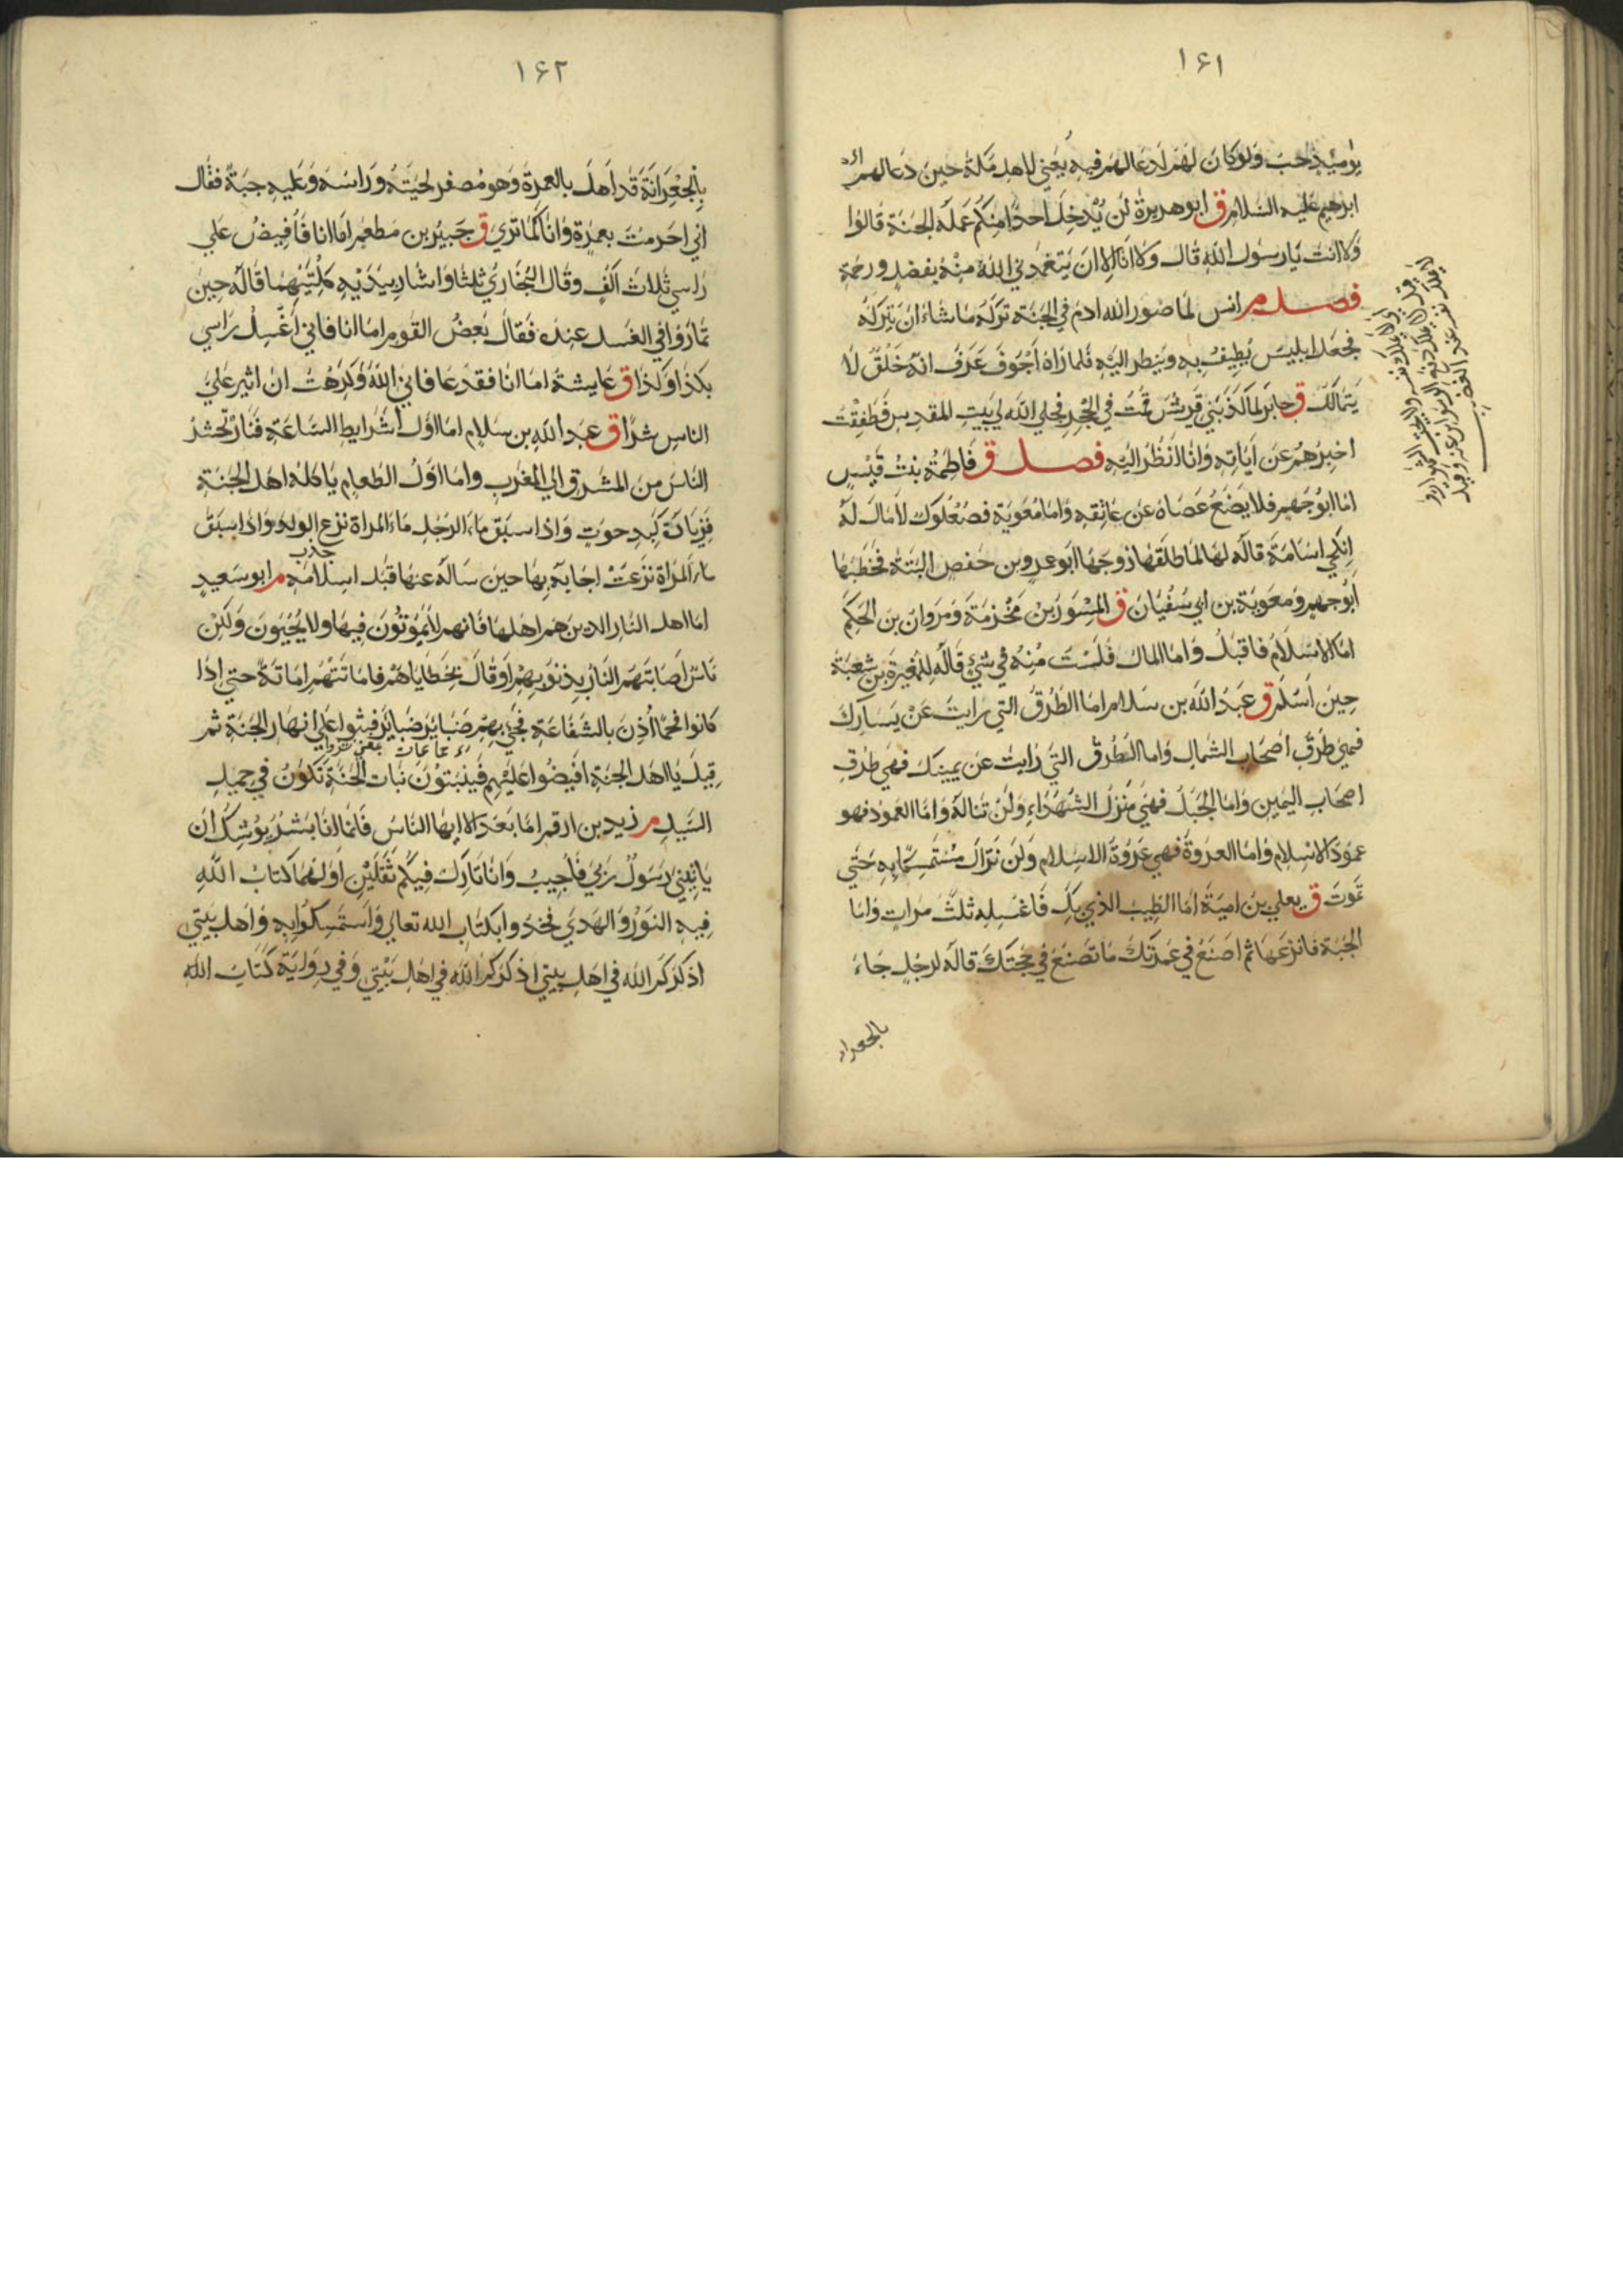 ١٤١
يومئذ حب ولو كان لهم لدعا لهم فيه يعني لاهل مكة حين دعا لهم
ابرهيم عليه السلام ق ابو هريرة لن يدخل احدا منكم عمله الجنة قالوا
ولا انت يا رسول الله قال ولا انا الا ان يتغمدني الله منه بفضل ورحمة
فصل م انس لما صور الله ادم في الجنة تركه ما شاء ان يتركه
فجعل ابليس يطيف به وينظر اليه فلما راه اجوف عرف انه خلق لا
يتمالك ق جابر لما كذبني قريش قمت في الحجر فجلي الله لي بيت المقدس فطفقت
اخبرهم عن اياته وانا انظر اليه فصل ق فاطمة بنت قيس
اما ابو جهم فلا يضع عصاه عن عاتقه واما معوية فصعلوك لا مال له
انكحي اسامة قاله لها لما طلقها زوجها ابو عمرو بن حفص البتة فخطبها
ابو جهم ومعوية بن ابي سفيان ق المسور بن مخرمة ومروان بن الحكم
اما الاسلام فاقبل واما المال فلست منه في شئ قاله للمغيرة بن شعبة
حين اسلم ق عبد الله بن سلام اما الطرق التي رايت عن يسارك
فهي طرق اصحاب الشمال واما الطرق التي رايت عن يمينك فهي طرق
اصحاب اليمين واما الجبل فهي منزل الشهداء ولن تناله واما العمود فهو
عمود الاسلام واما العروة فهي عروة الاسلام ولن تزال مستمسكا به حتي
تموت ق يعلي بن امية اما الطيب الذي بك فاغسله ثلث مرات واما
الجبة فانزعها ثم اصنع في عمرتك ما تصنع في حجتك قاله لرجل جاء
١٤٢
بالجعرانة قد اهل بالعمرة وهو مصفر لحيته وراسه وعليه جبة فقال
اني احرمت بعمرة وانا كما تري ق جبير بن مطعم اما انا فافيض علي
راسي ثلاث اكف وقال البخاري ثلثا واشار بيديه كلتيهما قاله حين
تماروا في الغسل عنده فقال بعض القوم اما انا فاني اغسل راسي
بكذا وكذا ق عايشة اما انا فقد عافاني الله وكرهت ان اثير علي
الناس شرا ق عبد الله بن سلام اما اول اشرايط الساعة فنار تحشر
الناس من المشرق الي المغرب واما اول الطعام ياكله اهل الجنة
فزيادة كبد حوت واذا سبق ماء الرجل ماء المراة نزع الولد واذا سبق
ماء المراة نزعت اجابه بها حين ساله عنها قبل اسلامه م ابو سعيد
اما اهل النار الدين هم اهلها فانهم لا يموتون فيها ولا يحيون ولكن
ناس اصابتهم النار بذنوبهم او قال بخطاياهم فاماتتهم اماتة حتي اذا
كانوا فحما اذن بالشفاعة فجئ بهم ضباير ضباير فبثوا علي انهار الجنة ثم
قيل يا اهل الجنة افيضوا عليهم فينبتون نبات الحبة تكون في حميل
السيل م زيد بن ارقم اما بعد الا ايها الناس فانما انا بشر يوشك ان
ياتيني رسول ربي فاجيب وانا تارك فيكم ثقلين اولهما كتاب الله
فيه النور والهدي فخذوا بكتاب الله تعالي واستمسكوا به واهل بيتي
اذكركم الله في اهل بيتي اذكركم الله في اهل بيتي وفي رواية كتاب الله